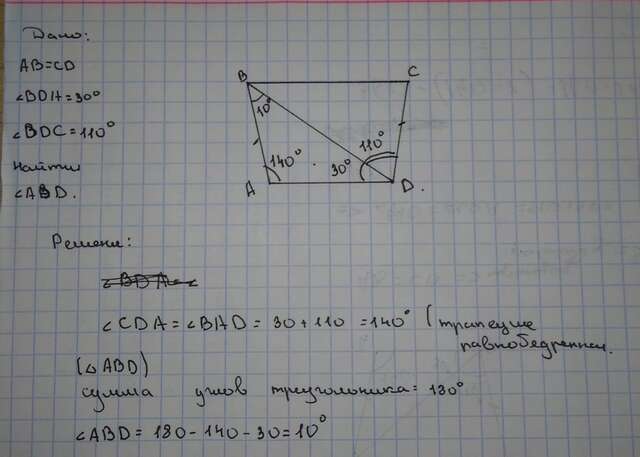 Дано:
AB=CD
∠BDA=30°
∠BDC=110°
Найти
∠ABD.
B
C
10°
110°
140°
30°
A
D.
Решение:
∠BDA=∠
∠CDA=∠BAD=30+110=140° (трапеция
равнобедренная.
(△ABD)
сумма углов треугольника=180°
∠ABD=180-140-30=10°